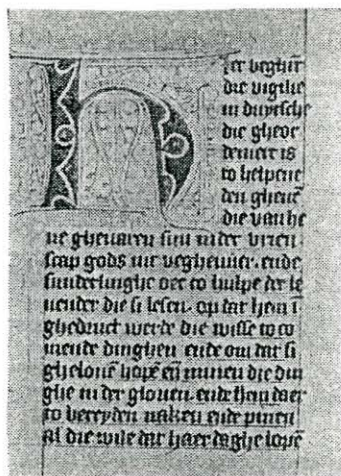 Hier beghīt
die vigilie
in duytsche
die gheor
dineert is
to helpene
den ghenē
die van he
ne ghevaren sijn in der vrien
scap gods uut veghevuer. ende
sunderlinghe oec to hulpe der le
vender die si lesen. op dat hem i
ghedruct werde die wisse to co
mende dinghen ende om dat si
ghelove hope eñ minnen die din
ghe in der gloven. ende hem daer
to bereyden maken ende pinen
al die wile dat haer daghe lopē